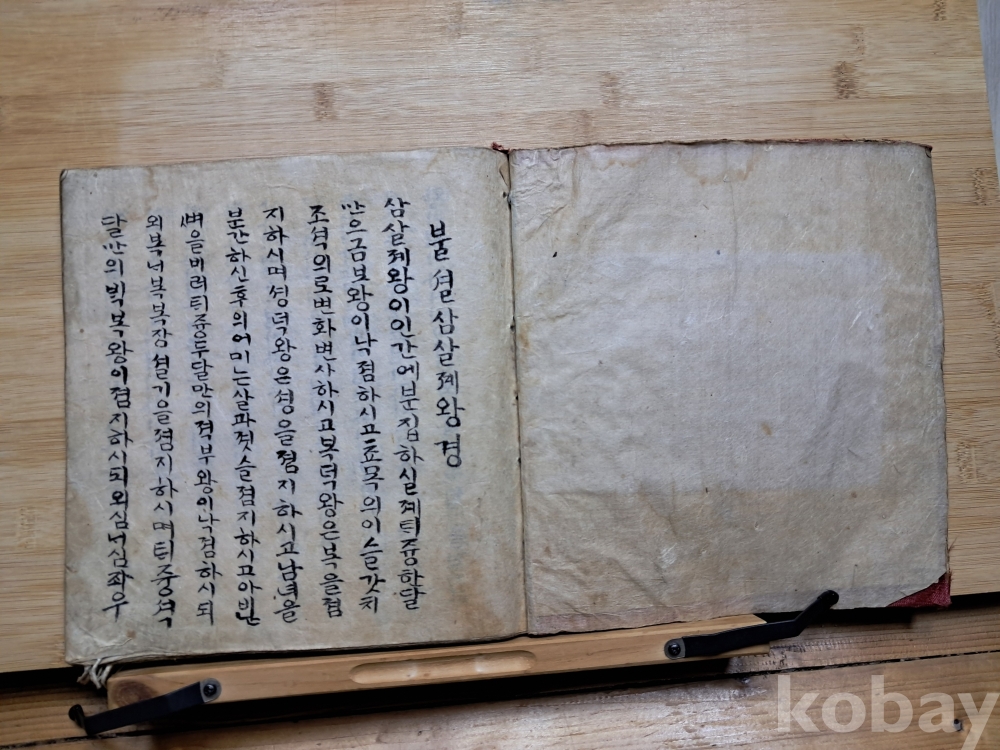 불셜삼살졔왕경
삼살졔왕이인간에분집하실졔틔즁한달
만으금보왕이낙졈하시고쵸목의이슬갓치
조셕의로변화변사하시고복덕왕은복을졈
지하시며셩덕왕은셩을졈지하시고남녀을
분간하신후의어미는살과졋슬졈지하시고아반
뼈을비러틔즁두달만의젹부왕이낙졈하시되
외복너복복장셜기을졈지하시며틔즁석
달만의빅복왕이졈지하시되외심너심좌우
kobay